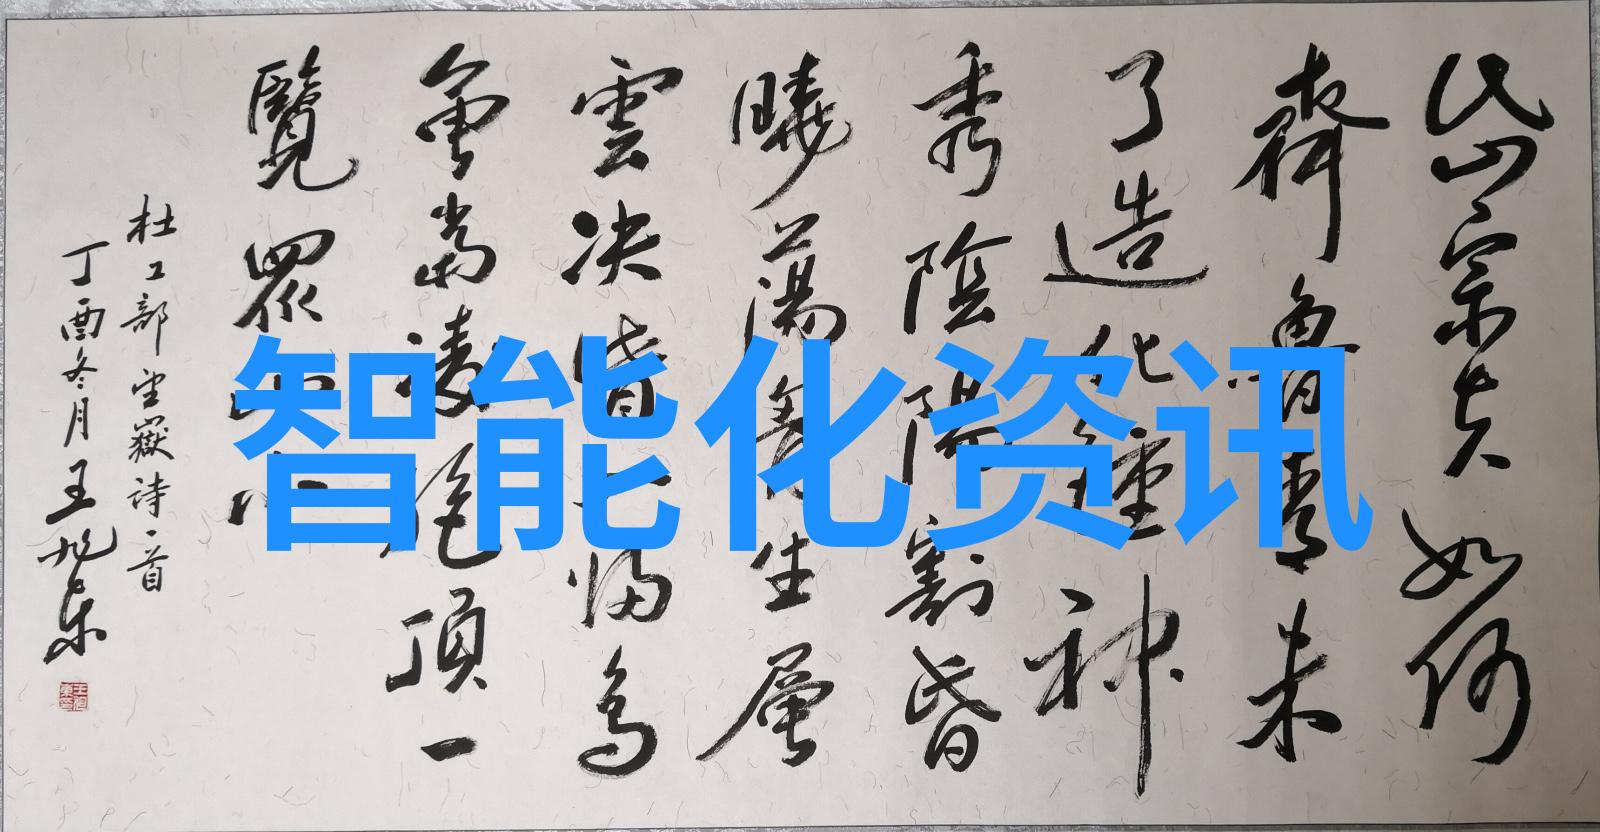 岱宗夫如何
齊魯青未
了造化鍾神
秀陰陽割昏
曉蕩胷生層
雲决眥入歸鳥
會當凌絕頂一
覽眾山小
杜工部望嶽詩一首
丁酉冬月王旭东
智能化资讯